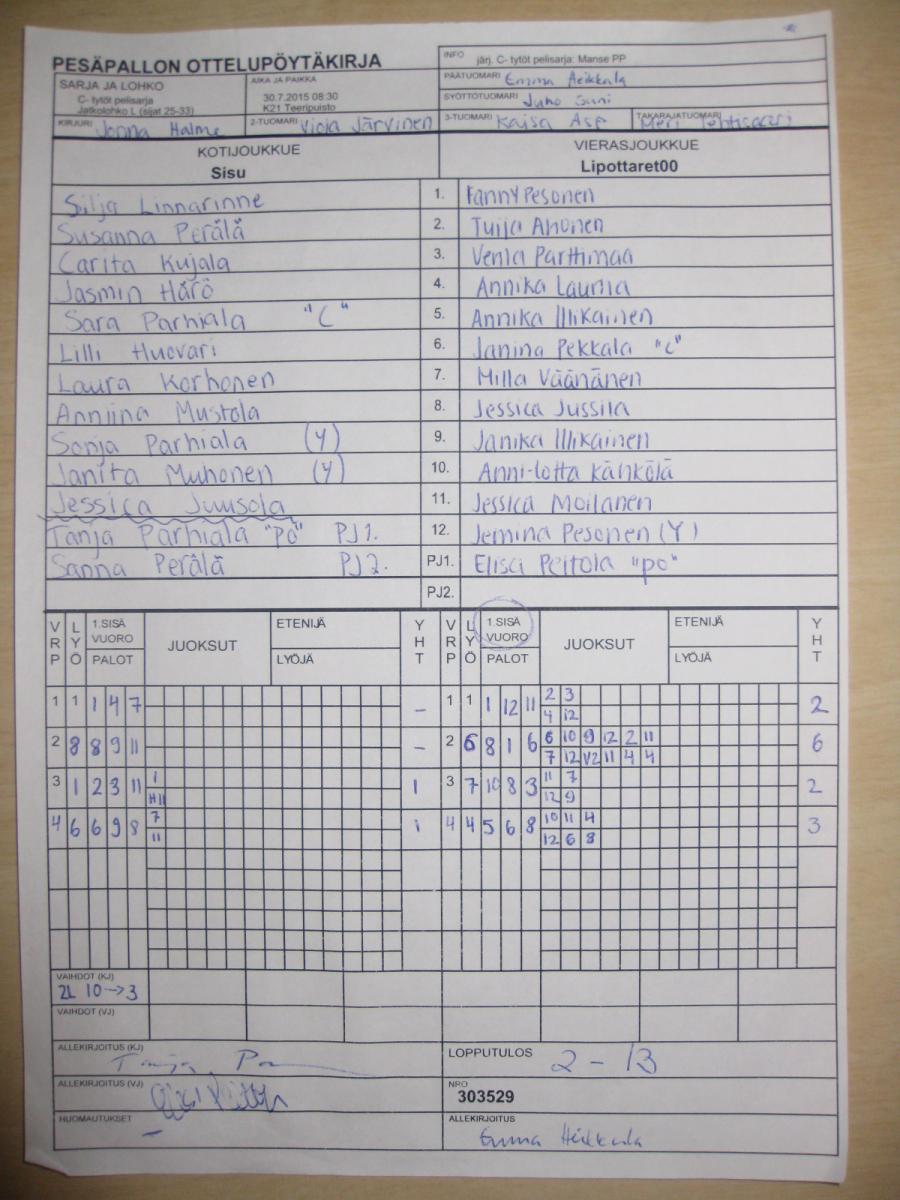 PESÄPALLON OTTELUPÖYTÄKIRJA
INFO järj. C- tytöt pelisarja: Manse PP
SARJA JA LOHKO
C- tytöt pelisarja
Jatkolohko L (sijat 25-33)
AIKA JA PAIKKA
30.7.2015 08:30
K21 Teeripuisto
PÄÄTUOMARI Emma Heikkala
SYÖTTÖTUOMARI Juho Suni
KIRJURI Jonna Halme 2-TUOMARI Viola Järvinen 3-TUOMARI Kaisa Asp TAKARAJATUOMARI Meri Lehtisaari
KOTIJOUKKUE VIERASJOUKKUE
Sisu Lipottaret00
Silja Linnarinne 1. Fanny Pesonen
Susanna Perälä 2. Tuija Ahonen
Carita Kujala 3. Venla Parttimaa
Jasmin Härö 4. Annika Laurila
Sara Parhiala "C" 5. Annika Illikainen
Lilli Huovari 6. Janina Pekkala "C"
Laura Korhonen 7. Milla Väänänen
Anniina Mustola 8. Jessica Jussila
Sonja Parhiala (Y) 9. Janika Illikainen
Janita Muhonen (Y) 10. Anni-Lotta Kähkölä
Jessica Juusola 11. Jessica Moilanen
Tanja Parhiala "PO" PJ1. 12. Jemina Pesonen (Y)
Sanna Perälä PJ2. PJ1. Elisa Peitola "PO"
PJ2.
VRP LYÖ 1.SISÄ VUORO PALOT JUOKSUT ETENIJÄ LYÖJÄ YHT VRP LYÖ 1.SISÄ VUORO PALOT JUOKSUT ETENIJÄ LYÖJÄ YHT
1 1 1 4 7 – 1 1 1 12 11 2 3 2
4 12
2 8 8 9 11 – 2 6 8 1 6 6 10 9 12 2 11 6
7 12 V2 11 4 4
3 1 2 3 11 1 1 3 7 10 8 3 11 7 2
H11 12 9
4 6 6 9 8 7 1 4 4 5 6 8 10 11 4 3
11 12 6 8
VAIHDOT (KJ)
2L 10→3
VAIHDOT (VJ)
ALLEKIRJOITUS (KJ) LOPPUTULOS 2 – 13
ALLEKIRJOITUS (VJ) NRO
303529
HUOMAUTUKSET – ALLEKIRJOITUS
Emma Heikkala